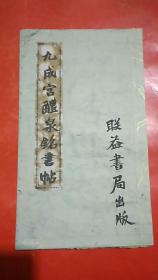 九成宮醴泉銘書帖
联益書局出版